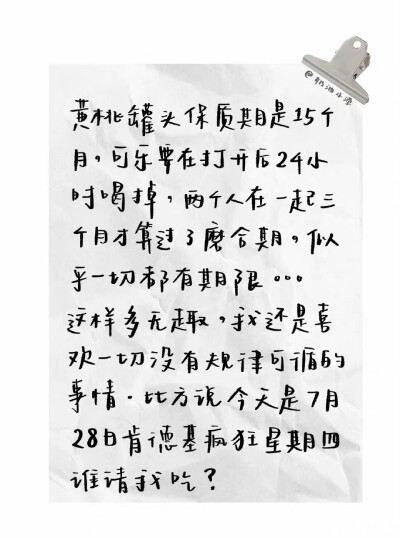 黄桃罐头保质期是15个
月，可乐要在打开后24小
时喝掉，两个人在一起三
个月才算过了磨合期，似
乎一切都有期限。。。
这样多无趣，我还是喜
欢一切没有规律可循的
事情.比方说今天是7月
28日肯德基疯狂星期四
谁请我吃？